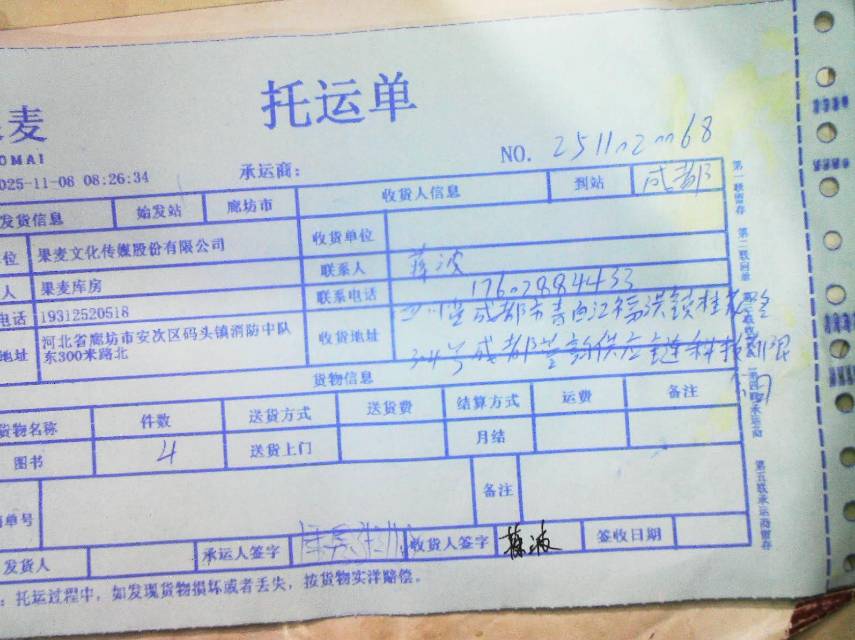 麦
OMAI
托运单
025-11-08 08:26:34
承运商：
NO. 2511020068
发货信息 始发站 廊坊市 收货人信息 到站 成都
位 果麦文化传媒股份有限公司 收货单位
人 果麦库房 联系人 蒋波
电话 19312520518 联系电话 17602884433
地址 河北省廊坊市安次区码头镇消防中队
东300米路北
收货地址 四川省成都市青白江区
号成都 供应链科技有限
公司
货物信息
货物名称 件数 送货方式 送货费 结算方式 运费 备注
图书 4 送货上门 月结
单号 备注
发货人 承运人签字 收货人签字 蒋波 签收日期
：托运过程中，如发现货物损坏或者丢失，按货物实洋赔偿。
第一联留存
第五联承运商留存